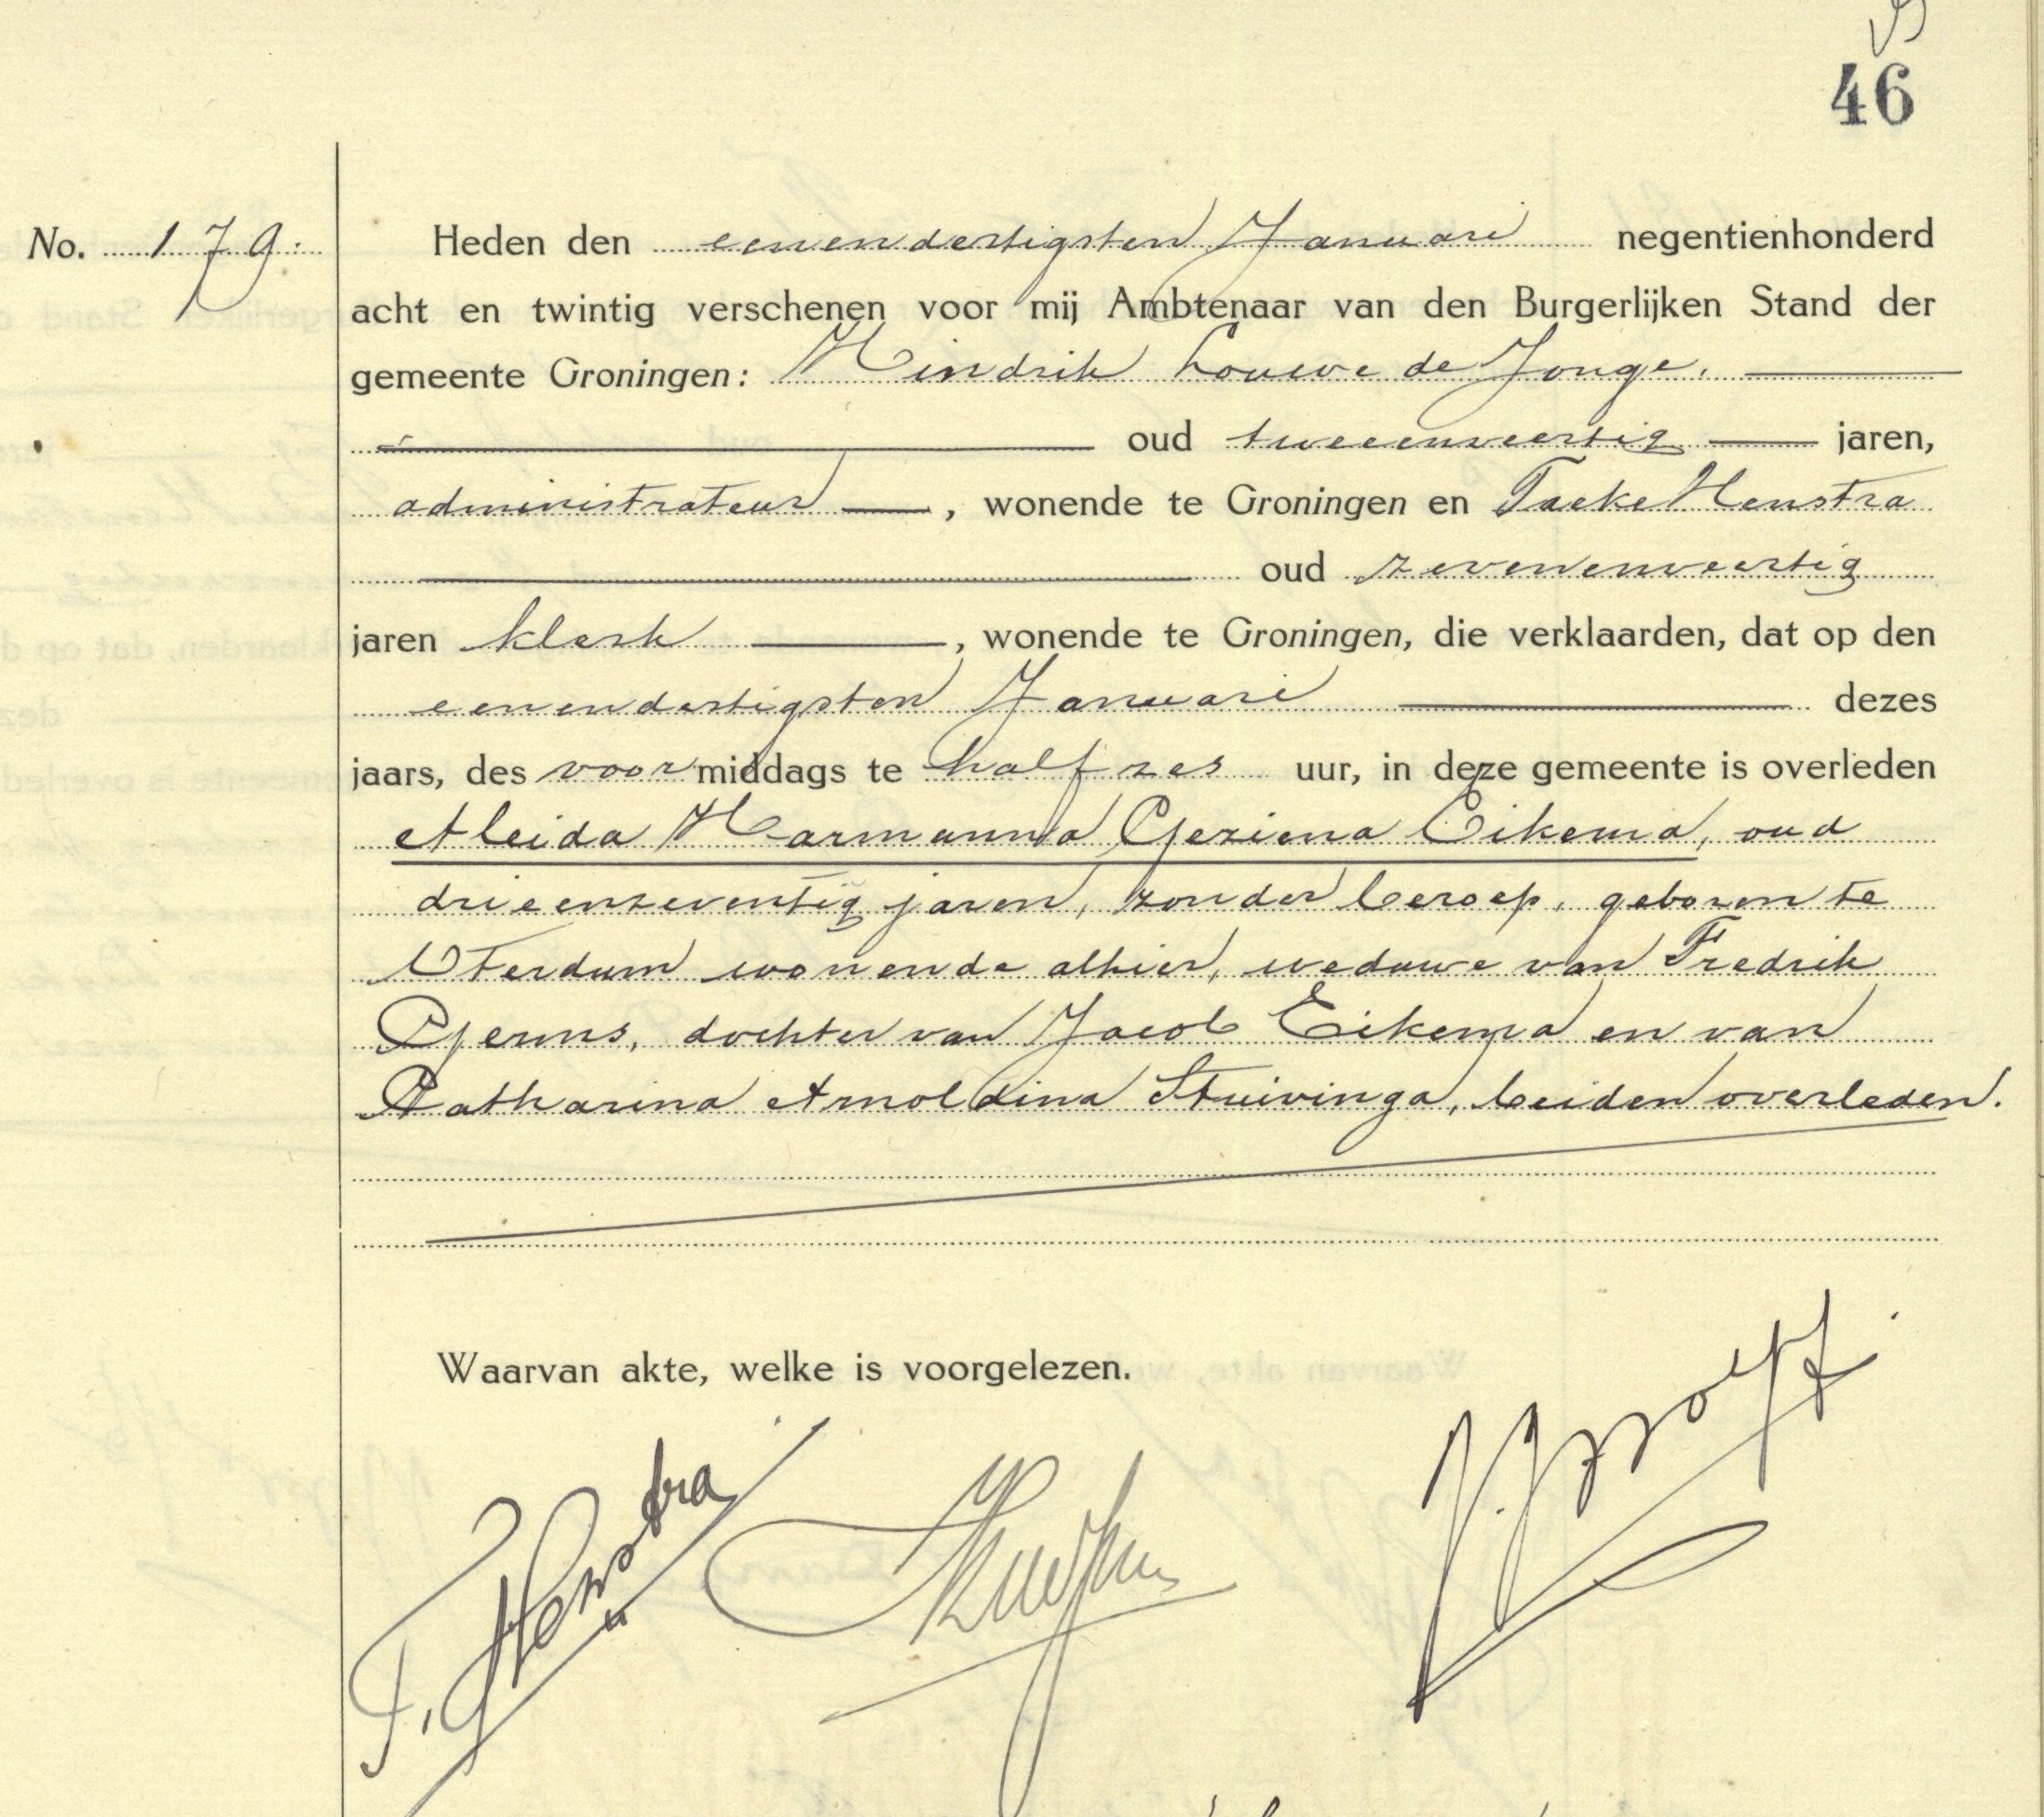 46
No. 179.
Heden den eenendertigsten Januari negentienhonderd
acht en twintig verschenen voor mij Ambtenaar van den Burgerlijken Stand der
gemeente Groningen: Hindrik Louwe de Jonge.
oud tweeenveertig jaren,
administrateur, wonende te Groningen en Taeke Henstra
oud zevenenveertig
jaren klerk, wonende te Groningen, die verklaarden, dat op den
eenendertigsten Januari dezes
jaars, des voormiddags te half zes uur, in deze gemeente is overleden
Aleida Harmanna Geziena Eikema, oud
drieenzeventig jaren, zonder beroep, geboren te
Oterdum wonende alhier, weduwe van Fredrik
Germs, dochter van Jacob Eikema en van
Katharina Arnoldina Stuivinga, beiden overleden.
Waarvan akte, welke is voorgelezen.
T. Henstra